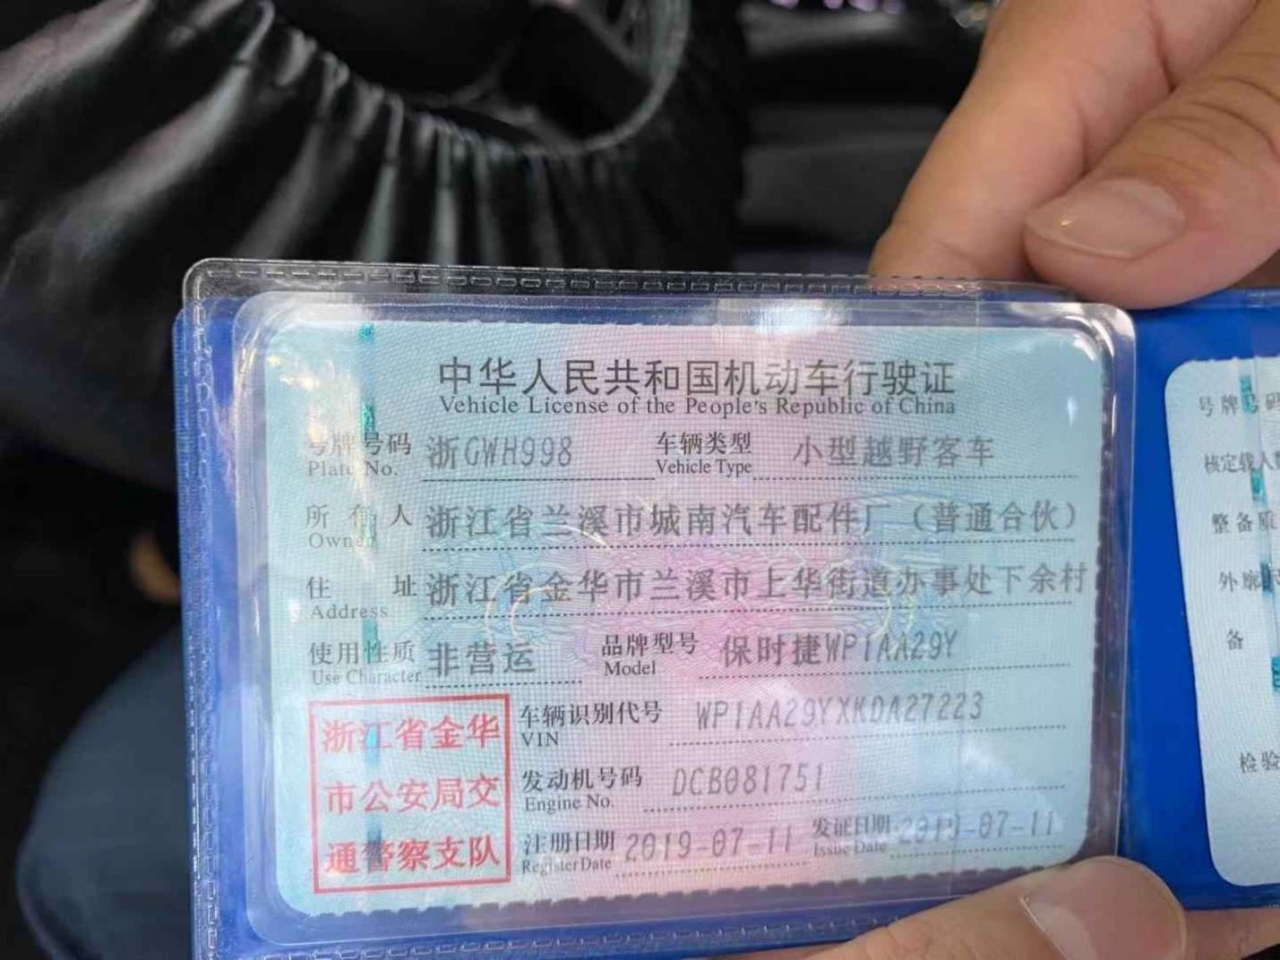 中华人民共和国机动车行驶证
Vehicle License of the People's Republic of China
号牌号码 浙GWH998 车辆类型 小型越野客车
Plate No. Vehicle Type
所有人 浙江省兰溪市城南汽车配件厂（普通合伙）
Owner
住址 浙江省金华市兰溪市上华街道办事处下余村
Address
使用性质 非营运 品牌型号 保时捷WP1AA29Y
Use Character Model
车辆识别代号 WP1AA29YXKDA27223
VIN
发动机号码 DCB081751
Engine No.
注册日期 2019-07-11 发证日期 2019-07-11
Register Date Issue Date
浙江省金华
市公安局交
通警察支队
号牌号码
核定载人
整备质
外廓
备
检验